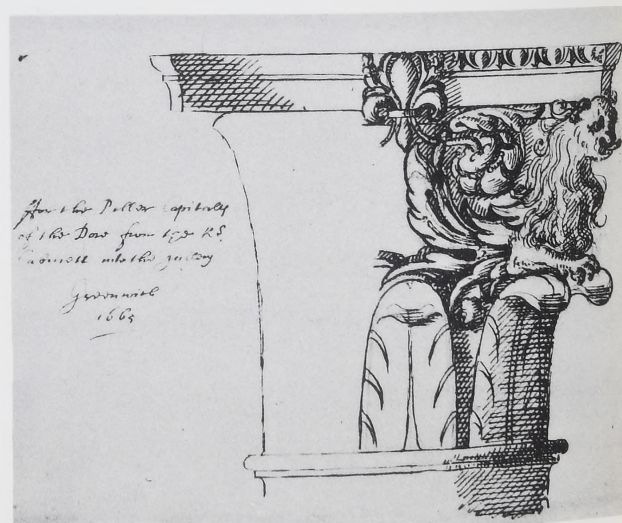 ffor the Piller Capitalls
of the Dore from the Ks.
into the gallery
Greenwich
1665